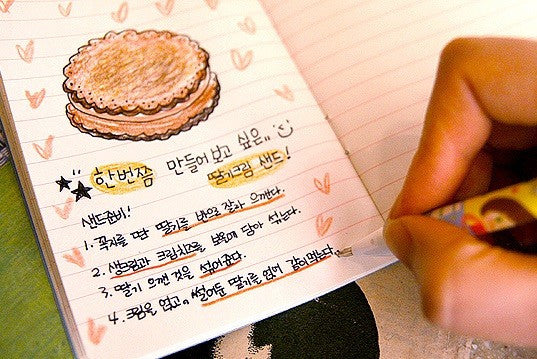 한번쯤 만들어 보고 싶은..
딸기크림 샌드!
샌드준비!
1. 꼭지를 딴 딸기를 반으로 잘라 으깬다.
2. 생크림과 크림치즈를 볼에 담아 섞는다.
3. 딸기 으깬 것을 섞어준다.
4. 크림을 얹고.. 썰어둔 딸기를 얹어 같이먹는다.